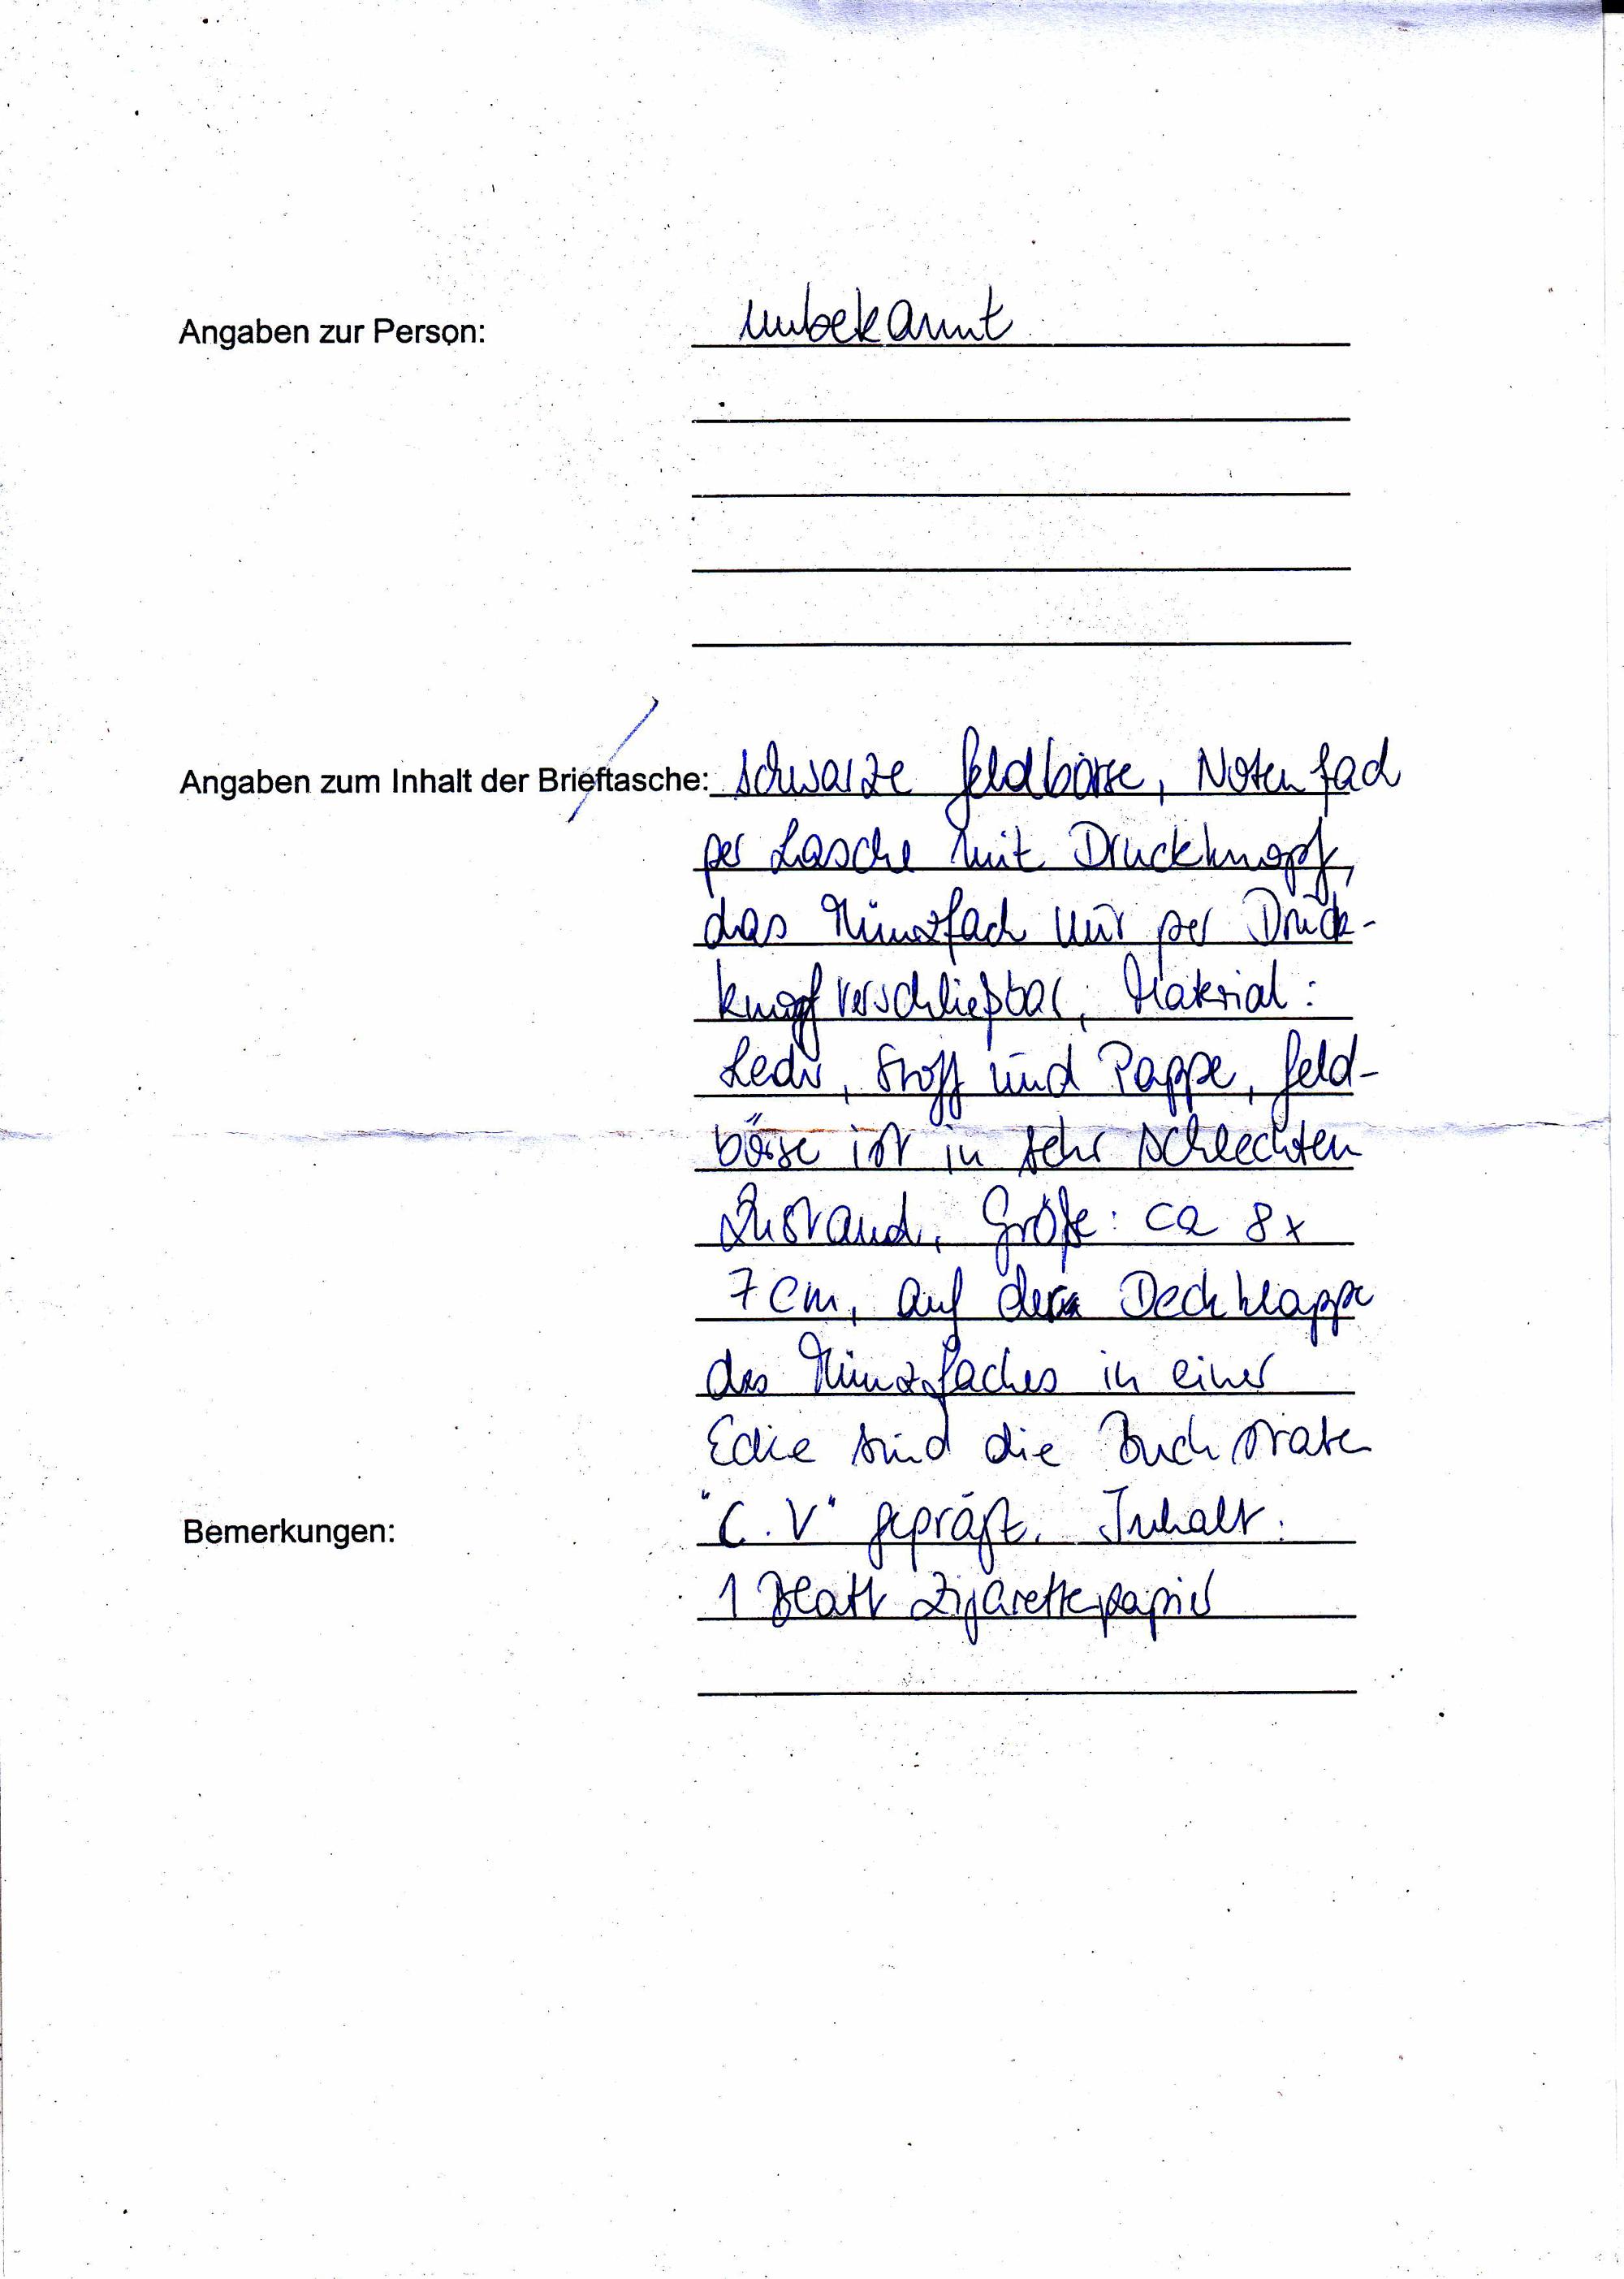 Angaben zur Person: unbekannt
Angaben zum Inhalt der Brieftasche: schwarze Geldbörse, Notenfach
per Lasche mit Druckknopf,
das Münzfach nur per Druck-
knopf verschließbar, Material:
Leder, Stoff und Pappe, Geld-
börse ist in sehr schlechten
Zustand, Größe: ca 8x
7cm, auf der Deckklappe
des Münzfaches in einer
Ecke sind die Buchstaben
Bemerkungen: "C.V" geprägt. Inhalt:
1 Blatt Zigarettepapier